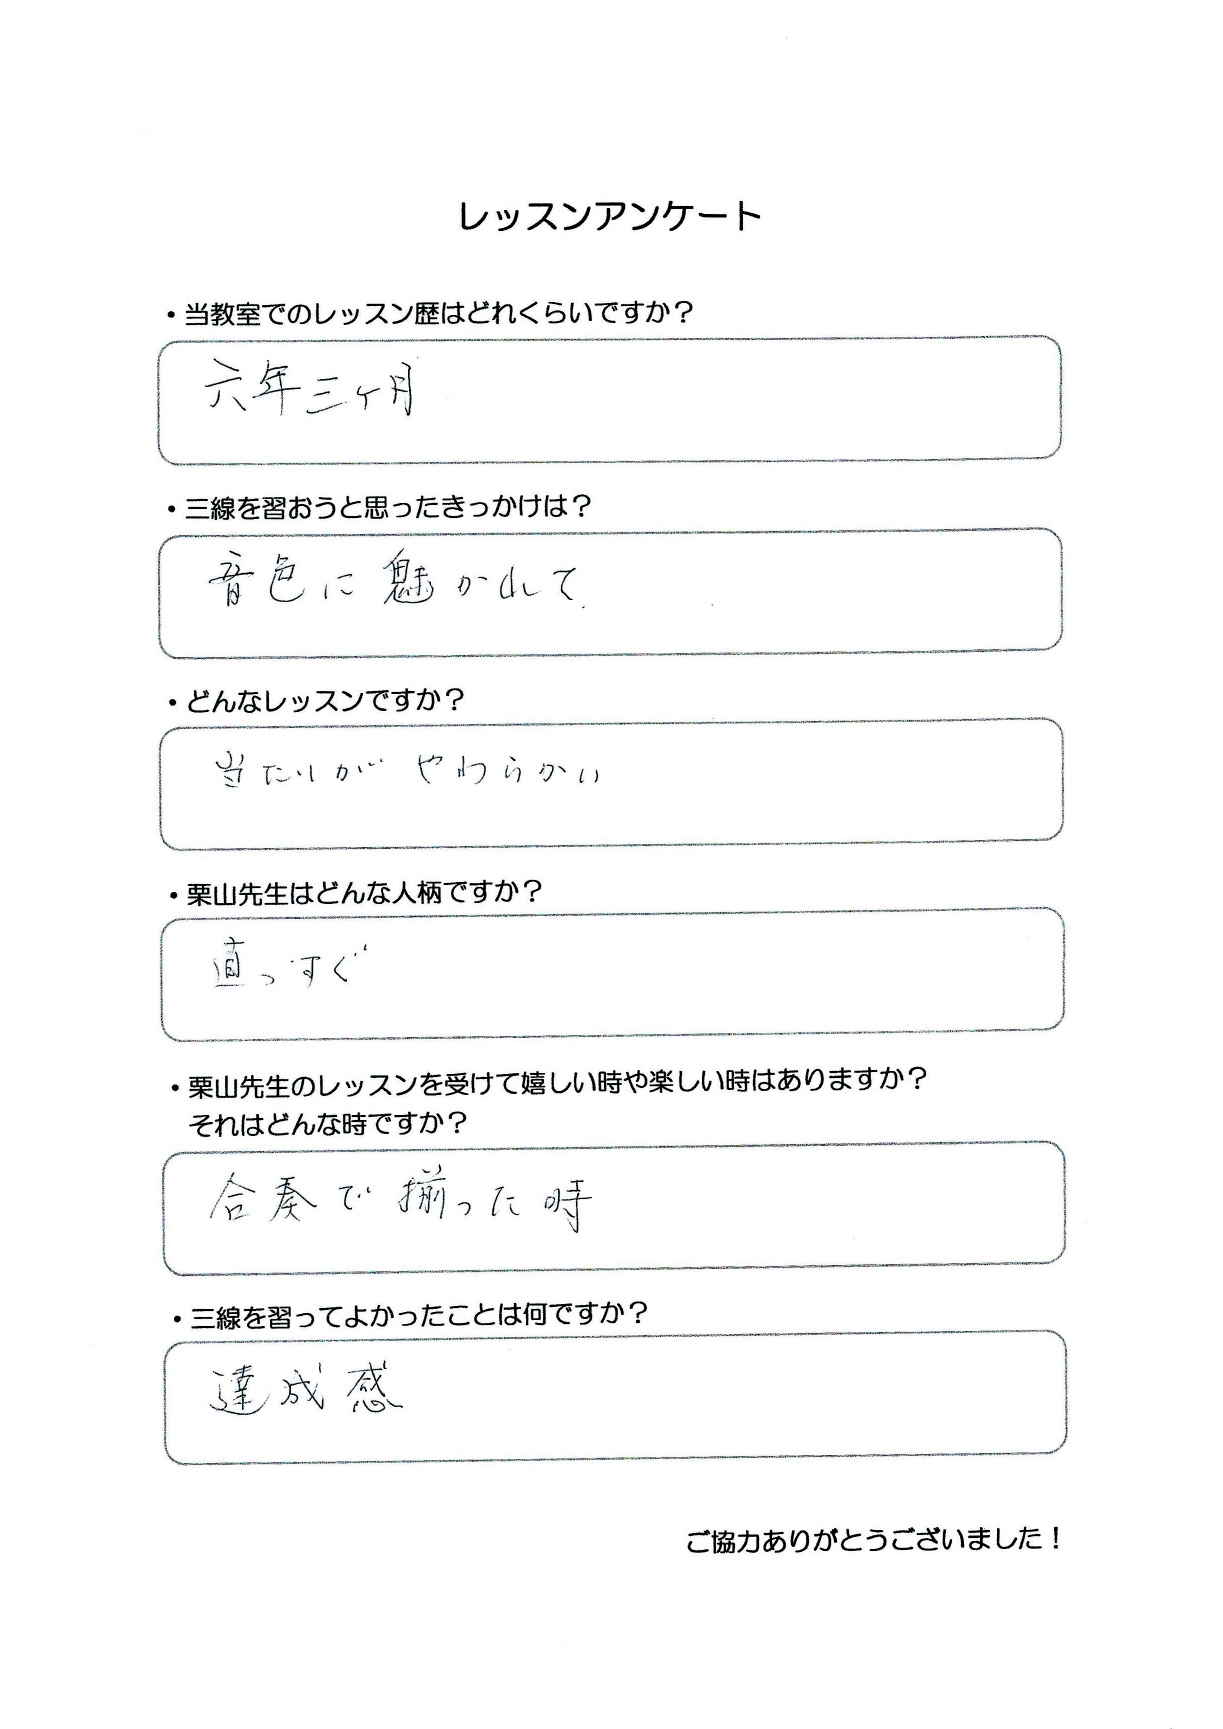 レッスンアンケート
・当教室でのレッスン歴はどれくらいですか？
六年三ヶ月
・三線を習おうと思ったきっかけは？
音色に魅かれて
・どんなレッスンですか？
当たりがやわらかい
・栗山先生はどんな人柄ですか？
直っすぐ
・栗山先生のレッスンを受けて嬉しい時や楽しい時はありますか？
それはどんな時ですか？
合奏で揃った時
・三線を習ってよかったことは何ですか？
達成感
ご協力ありがとうございました！